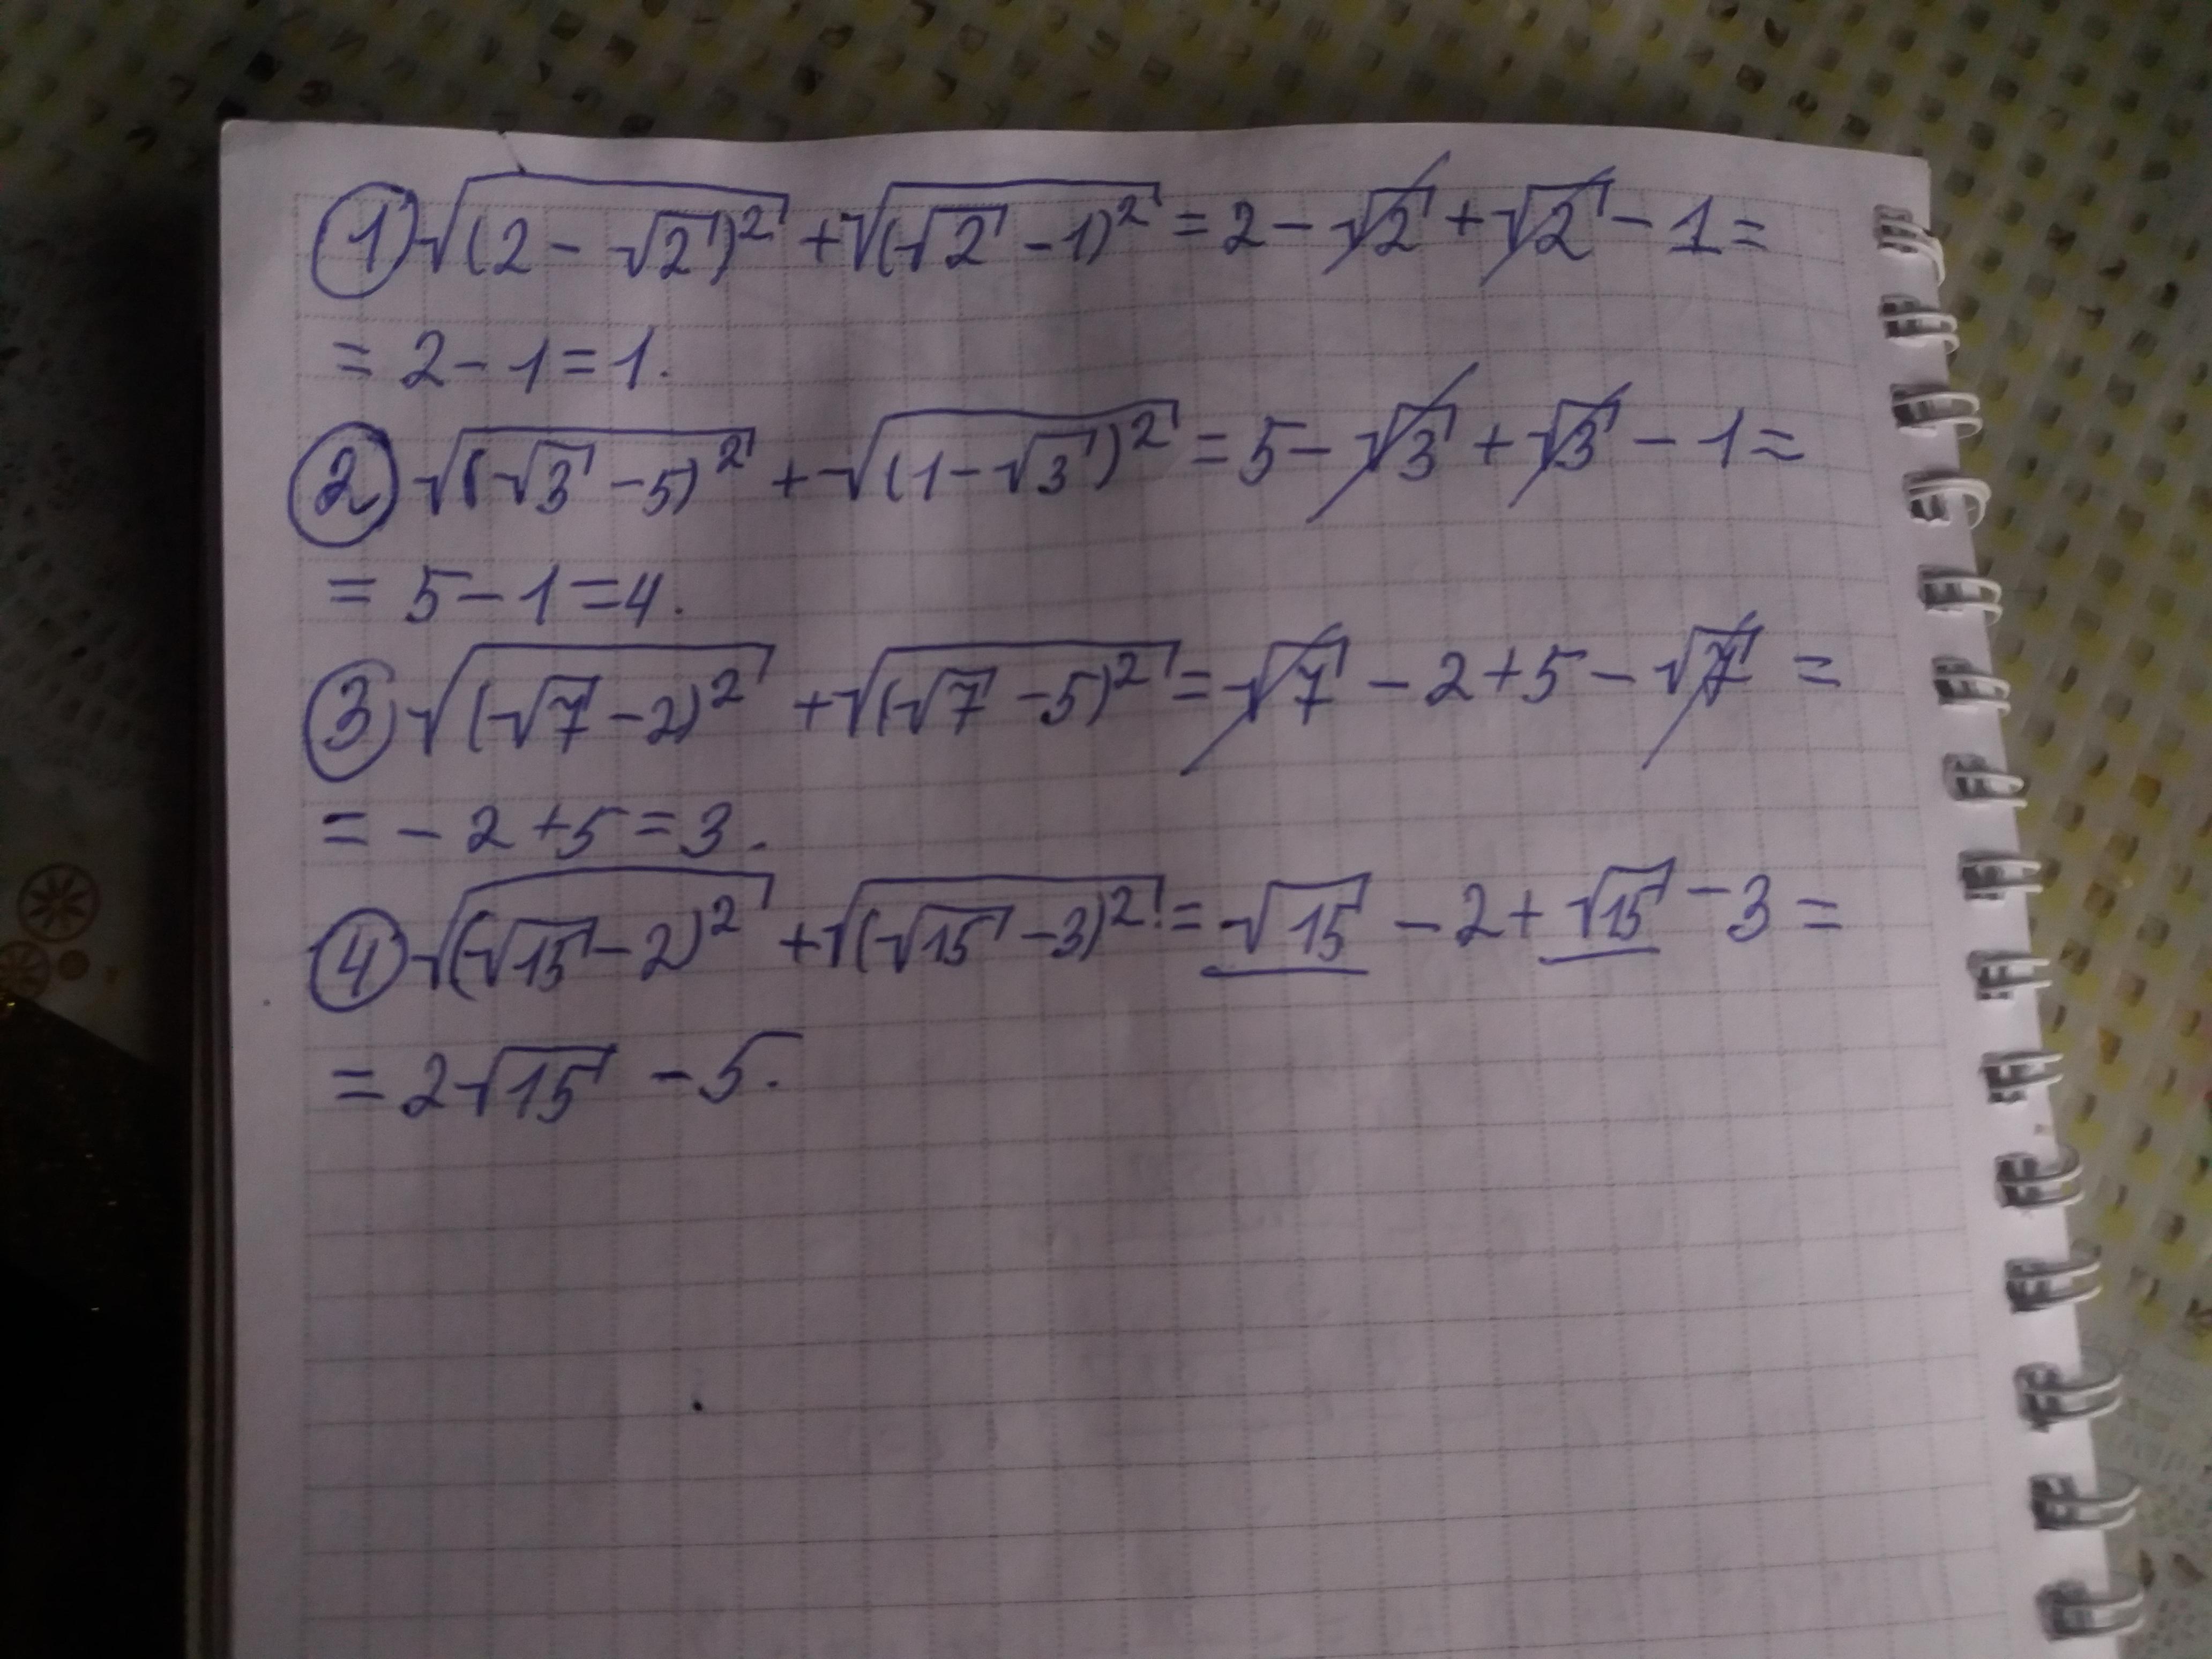 ① √(2 - √2)² + √(√2 - 1)² = 2 - √2 + √2 - 1 =
= 2 - 1 = 1.
② √(√3 - 5)² + √(1 - √3)² = 5 - √3 + √3 - 1 =
= 5 - 1 = 4.
③ √(√7 - 2)² + √(√7 - 5)² = √7 - 2 + 5 - √7 =
= - 2 + 5 = 3.
④ √(√15 - 2)² + √(√15 - 3)² = √15 - 2 + √15 - 3 =
= 2√15 - 5.